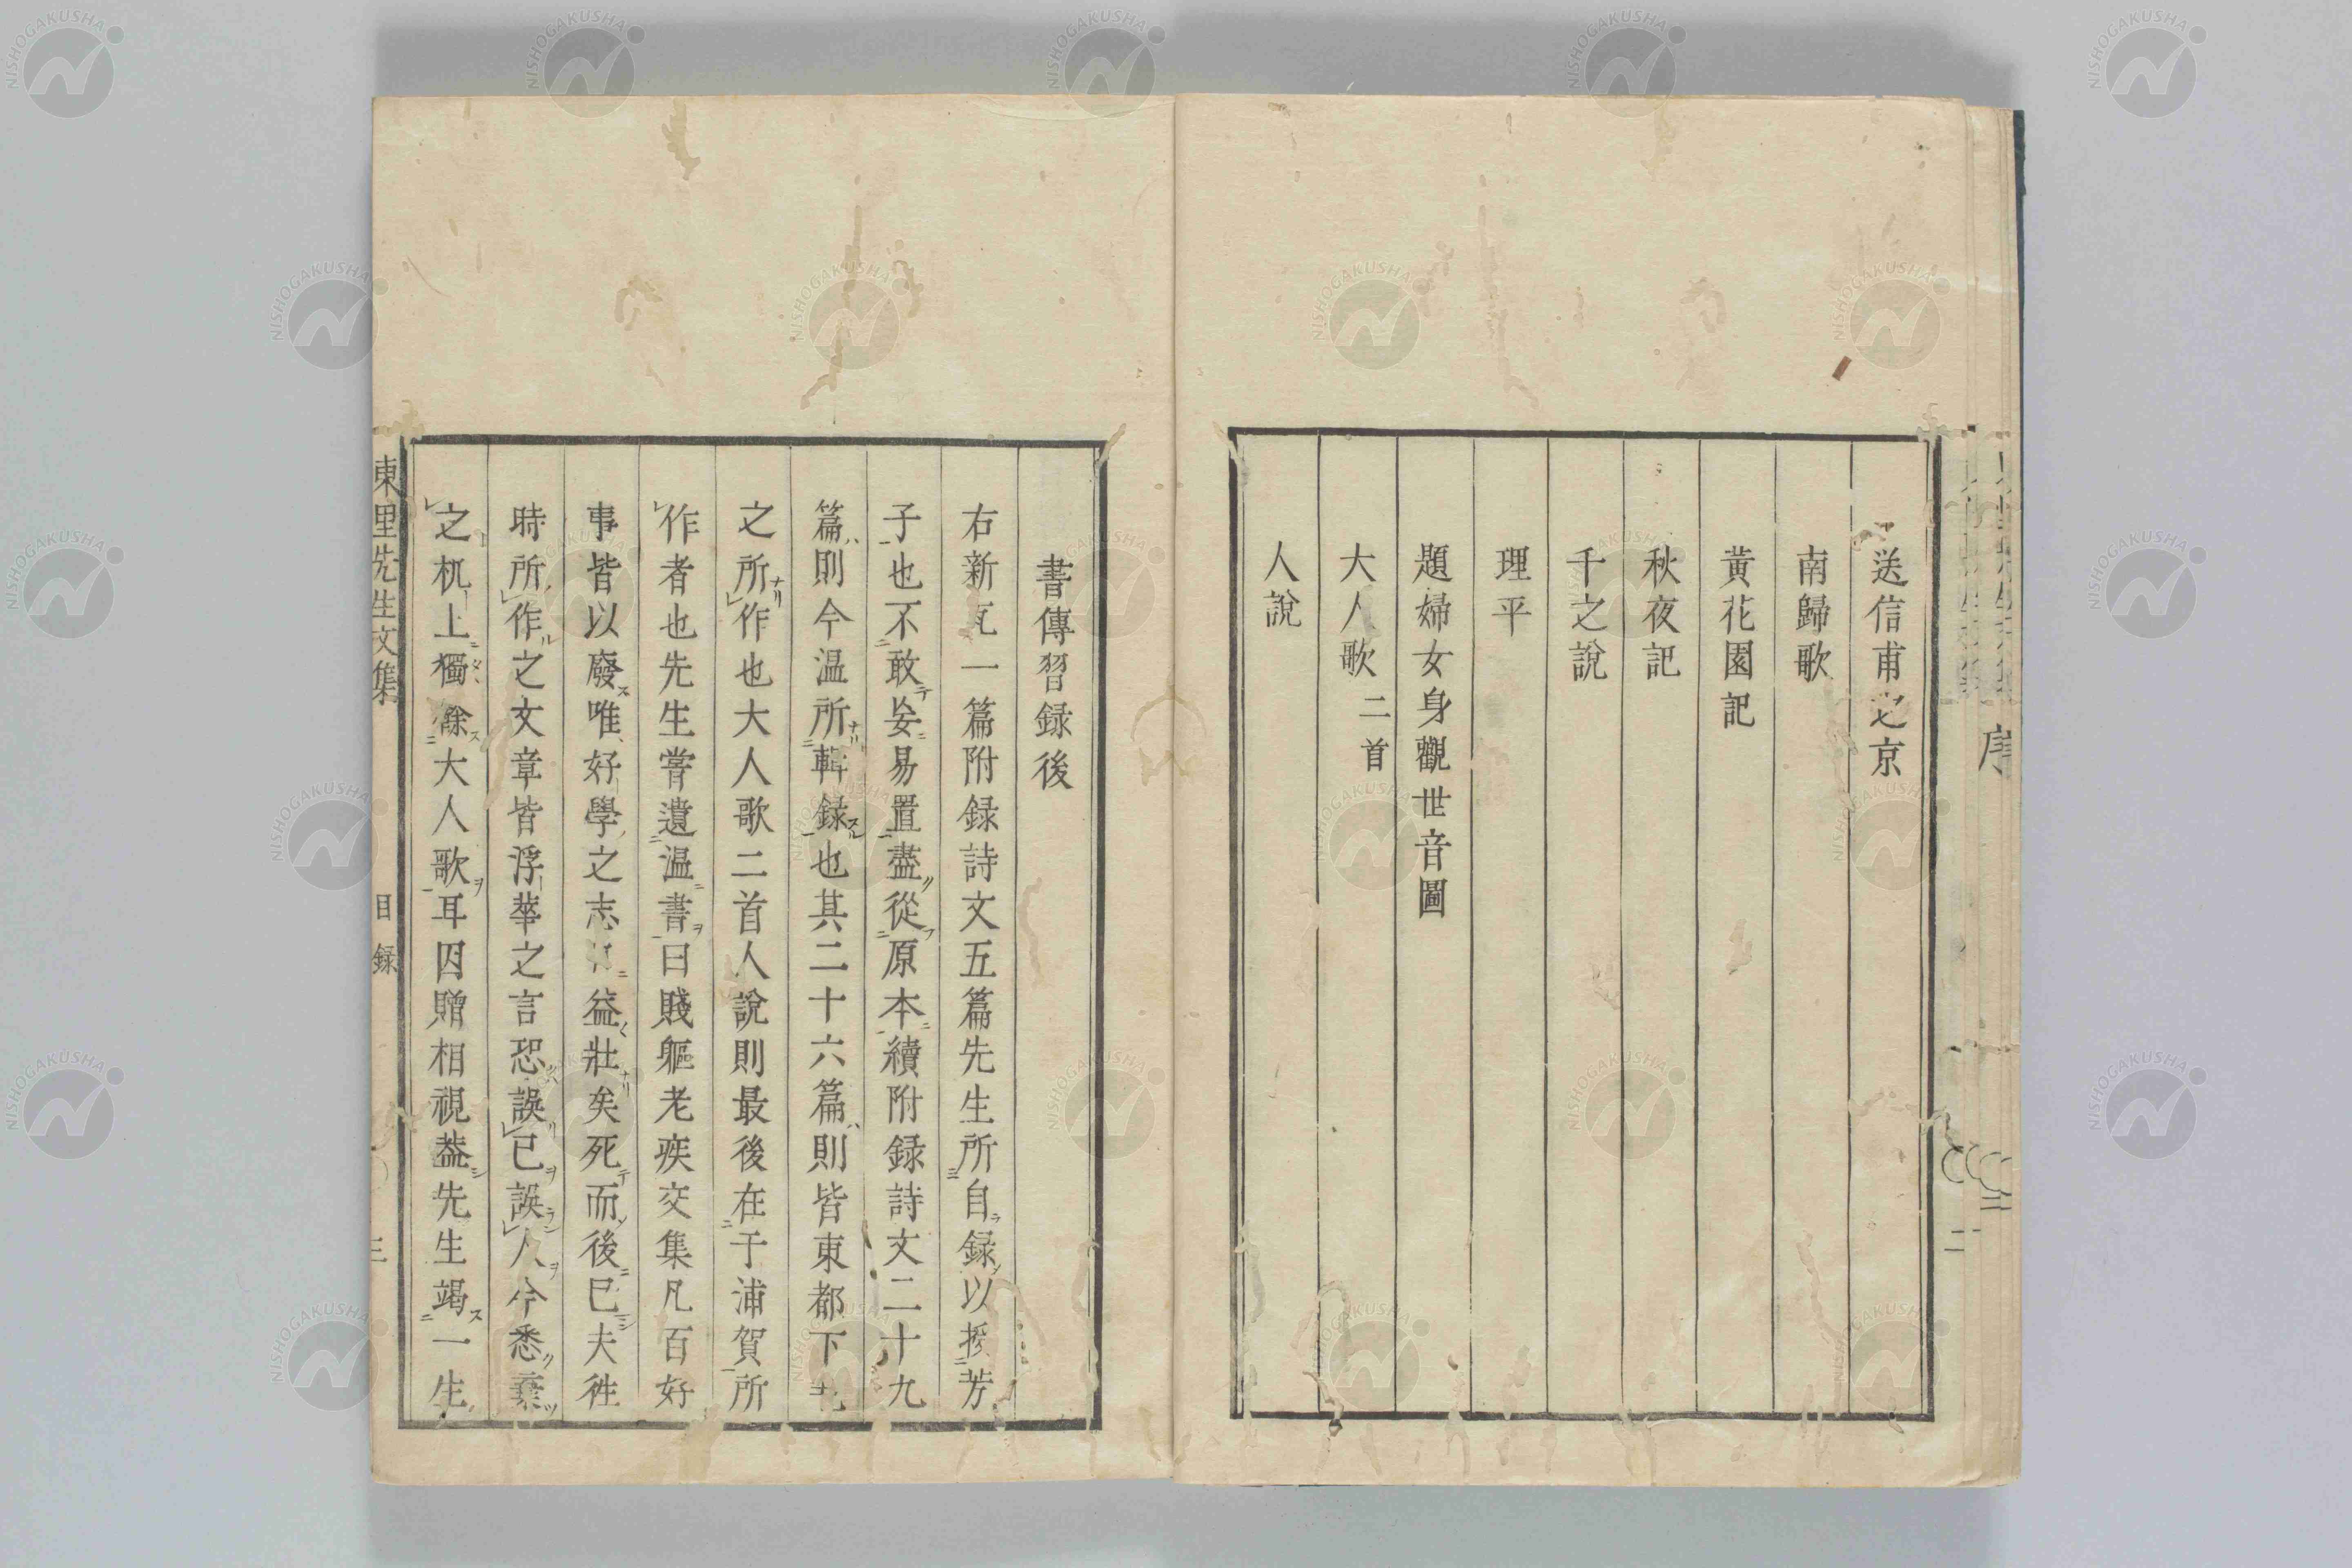 送信甫之京
南歸歌
黃花園記
秋夜記
千之說
理平
題婦女身觀世音圖
大人歌二首
人說
書傳習録後
右新瓦一篇附録詩文五篇先生所自録以授芳
子也不敢妄易置盡從原本續附録詩文二十九
篇則今温所輯録也其二十六篇則皆東都下
之所作也大人歌二首人說則最後在于浦賀所
作者也先生嘗遺温書曰賤軀老疾交集凡百好
事皆以廢唯好學之志益壯矣死而後已夫徃
時所作之文章皆浮華之言恐誤已誤人今悉棄
之机上獨餘大人歌耳因贈相視葢先生竭一生
東里先生文集
目録
三
NISHOGAKUSHA